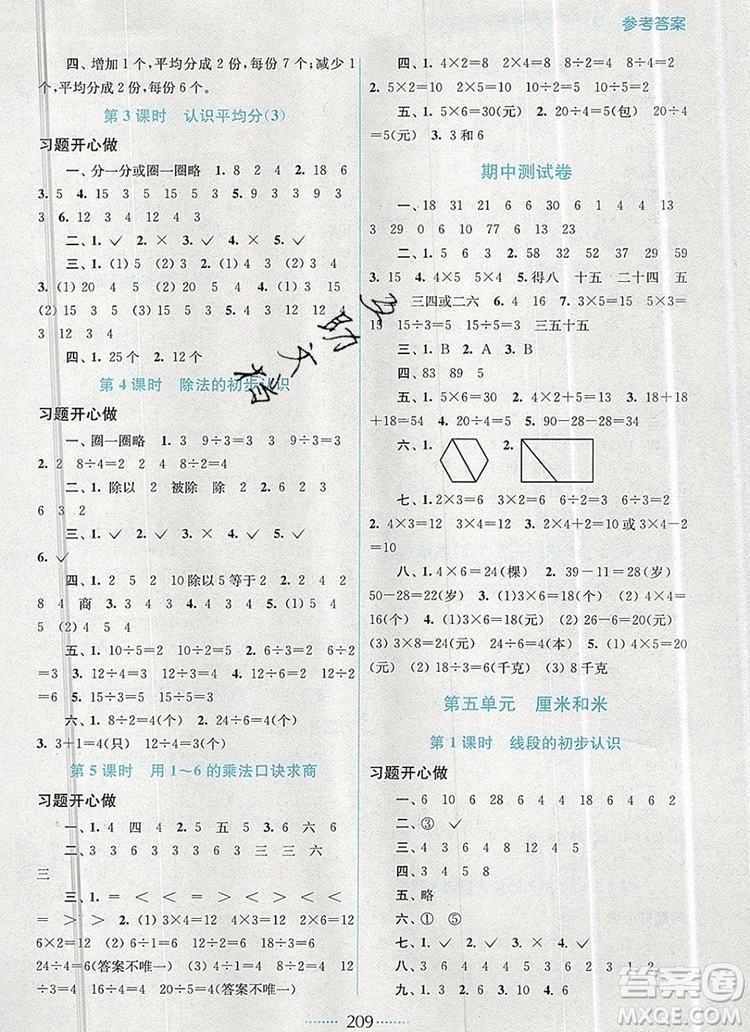 参考答案
四、增加 1 个，平均分成 2 份，每份 7 个；减少 1
个，平均分成 2 份，每份 6 个。
第 3 课时 认识平均分(3)
习题开心做
一、分一分或圈一圈略 1. 8 2 4 2. 18 6
3. 5 4. 15 3 5 15 5 3 5. 9 3 9
3 6. 12 3 4 12 4 3
二、1. ✓ 2. × 3. ✓ 4. × 5. ✓
三、1. (1) 5 (2) 4 2. (1) 5 (2) 4
3. (1) 20 4 5 (2) 20 5 4 4. (1) 15 5 3
(2) 15 3 5 (3) 5 3 5. (1) 12 3 4 12 4
3 12 3 4
四、1. 25 个 2. 12 个
第 4 课时 除法的初步认识
习题开心做
一、圈一圈略 1. 3 9÷3=3 3 9÷3=3
2. 2 8÷4=2 4 8÷2=4
二、1. 除以 2 被除 除以 2. 6 3 2 3
6 3 2
三、1. ✓ 2. ✓ 3. × 4. ✓ 5. ✓
6. ✓
四、1. 2 5 2 10除以 5 等于 2 2. 4 2
8 4 商 3. 2 5 2 4. 2 4 2 5. (1) 2
5 (2) 5 4
五、1. 10÷5=2 10÷2=5 2. 6÷2=3
6÷3=2 3. 12÷4=3 12÷3=4 4. 10÷2=5
10÷5=2
六、1. 8÷2=4(个) 2. 12÷4=3(个)
3. 3+1=4(只) 12÷4=3(个)
第 5 课时 用 1～6 的乘法口诀求商
习题开心做
一、1. 4 四 4 2. 5 五 5 3. 6 六 6
二、3 3 6 3 3 6 3 三 三 六
三
三、1. = < < = > < 2. > < <
= > > 3. (1) 3×4=12 4×3=12 2×6=12
6×2=12 (2) 12÷4=3 12÷3=4 12÷6=2
24÷6=4(答案不唯一) 4. (1) 9÷1=9 9÷3=3
24÷4=6(答案不唯一) (2) 4÷1=4 8÷2=4
四、1. 4×2=8 2×4=8 8÷4=2 8÷2=4
2. 5×2=10 2×5=10 10÷5=2 10÷2=5
五、1. 5×6=30(元) 2. 20÷4=5(包) 20÷
5=4(包) 3. 3 和 6
期中测试卷
一、18 31 21 6 6 30 6 1 4 4 13
3 29 0 6 10 77 6 13 23
二、1. 5 6 3 2. 58 32 52 37 29 59
3. 15 4. 4×5 4×5 5. 得八 十五 二十四 三
三四或二六 6. 4 16 7. 3×5=15 5×3=15
15÷5=3 15÷3=5 三五十五
三、1. B 2. A 3. B
四、83 89 5 5
五、1. 2×5=10 2. 12÷3=4 3. 18+18
+18=54 4. 20÷4=5 5. 90-28-28=34
六、1. 2.
七、1. 2×3=6 3×2=6 6÷2=3 6÷3=2
2. 4×3=12 3×4=12 3. 5×2=10 或 3×4-2
=10
八、1. 4×6=24(棵) 2. 39-11=28(岁)
50-28=22(岁) 3. (1) 3×6=18(元) (2) 4×4=16(元)
(3) 3×8=24(元) 24÷6=4(本) 5. (1) 4×5=20
(元) (2) 18÷3=6(千克) (3) 8 千克
第五单元 厘米和米
第 1 课时 线段的初步认识
习题开心做
一、6 10 6 28 6 4 4 18 6 4 6
二、③ ✓
三、4 3 6 4 8 12 4 5
四、3 4 5 8
五、略
六、① ⑤
七、1. ✓ 2. ✓ 3. × 4. ✓
八、3 6 3 4 3 4 3 6 3
九、1. 6 2. 3 3. 6
209